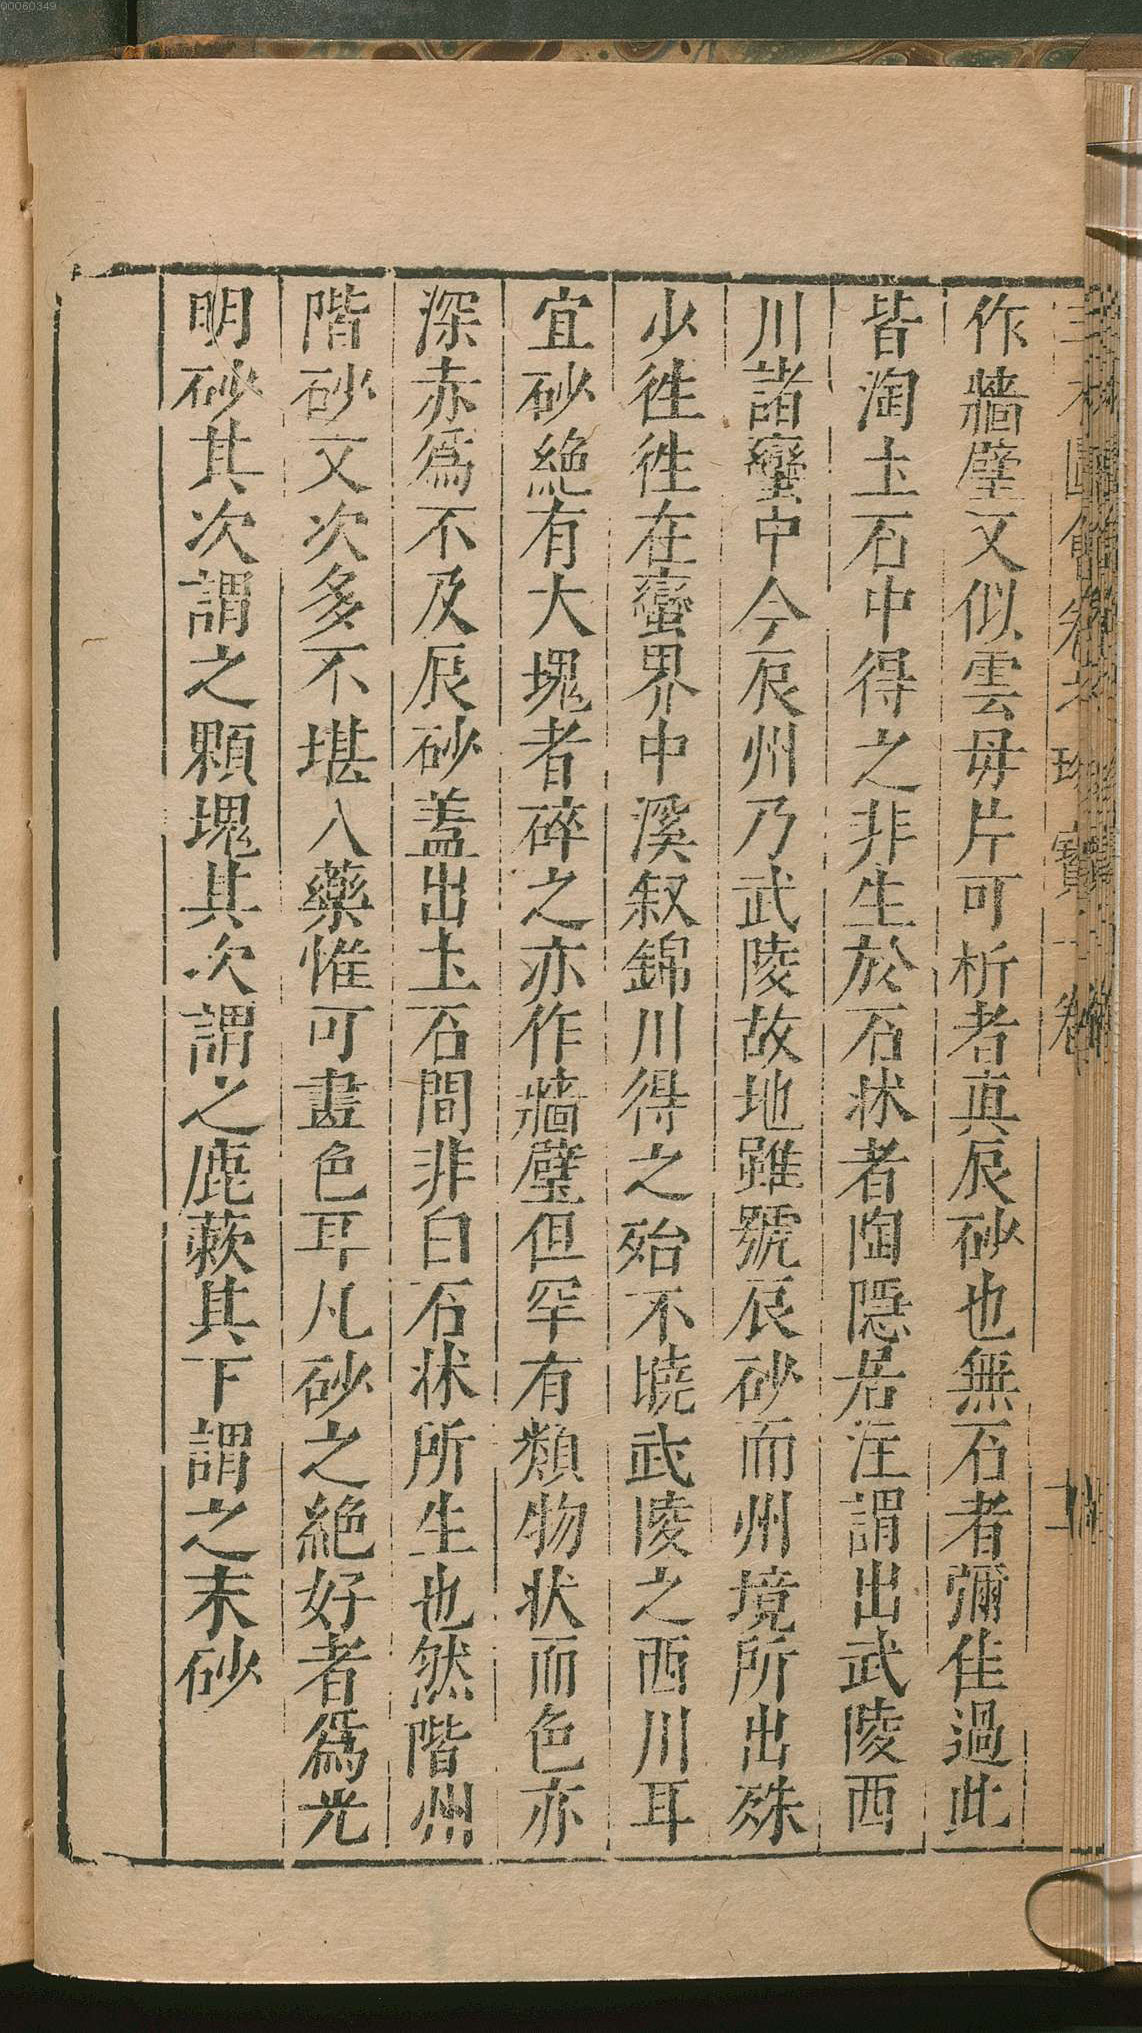 00060349
作牆壁又似雲毋片可析者真辰砂也無石者彌佳過此
皆淘土石中得之非生於石牀者陶隱居注謂出武陵西
川諸蠻中今辰州乃武陵故地雖號辰砂而州境所出殊
少徃徃在蠻界中溪叙錦川得之殆不墝武陵之西川耳
宜砂絶有大塊者碎之亦作牆壁但罕有類物状而色亦
深赤爲不及辰砂葢出土石間非白石牀所生也然階州
階砂又次多不堪入藥惟可畫色耳凡砂之絶好者爲光
明砂其次謂之顆塊其次謂之鹿蔌其下謂之末砂